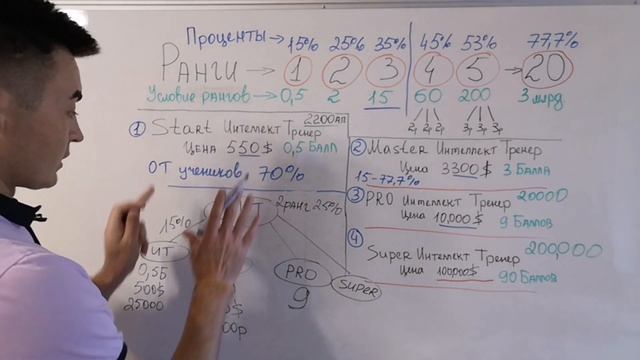 Проценты → 15% 25% 35% 45% 53% 77,7%
Ранги → 1 2 3 4 5 → 20
Условие рангов → 0,5 2 15 60 200 3 млрд.
2р 2р 2р 3р 3р 3р
2200АП
① Start Интеллект Тренер
Цена 550$ 0,5 Балл
От учеников 70%
② Master Интеллект Тренер
Цена 3300$ 3 Балла
15-77,7%
③ PRO Интеллект Тренер 20000
Цена 10,000$ 9 Баллов
④ Super Интеллект Тренер 200,000
Цена 100,000$ 90 Баллов
2 ранг 25%
15%
ИТ
0,5Б
500$
25000
PRO
9
SUPER